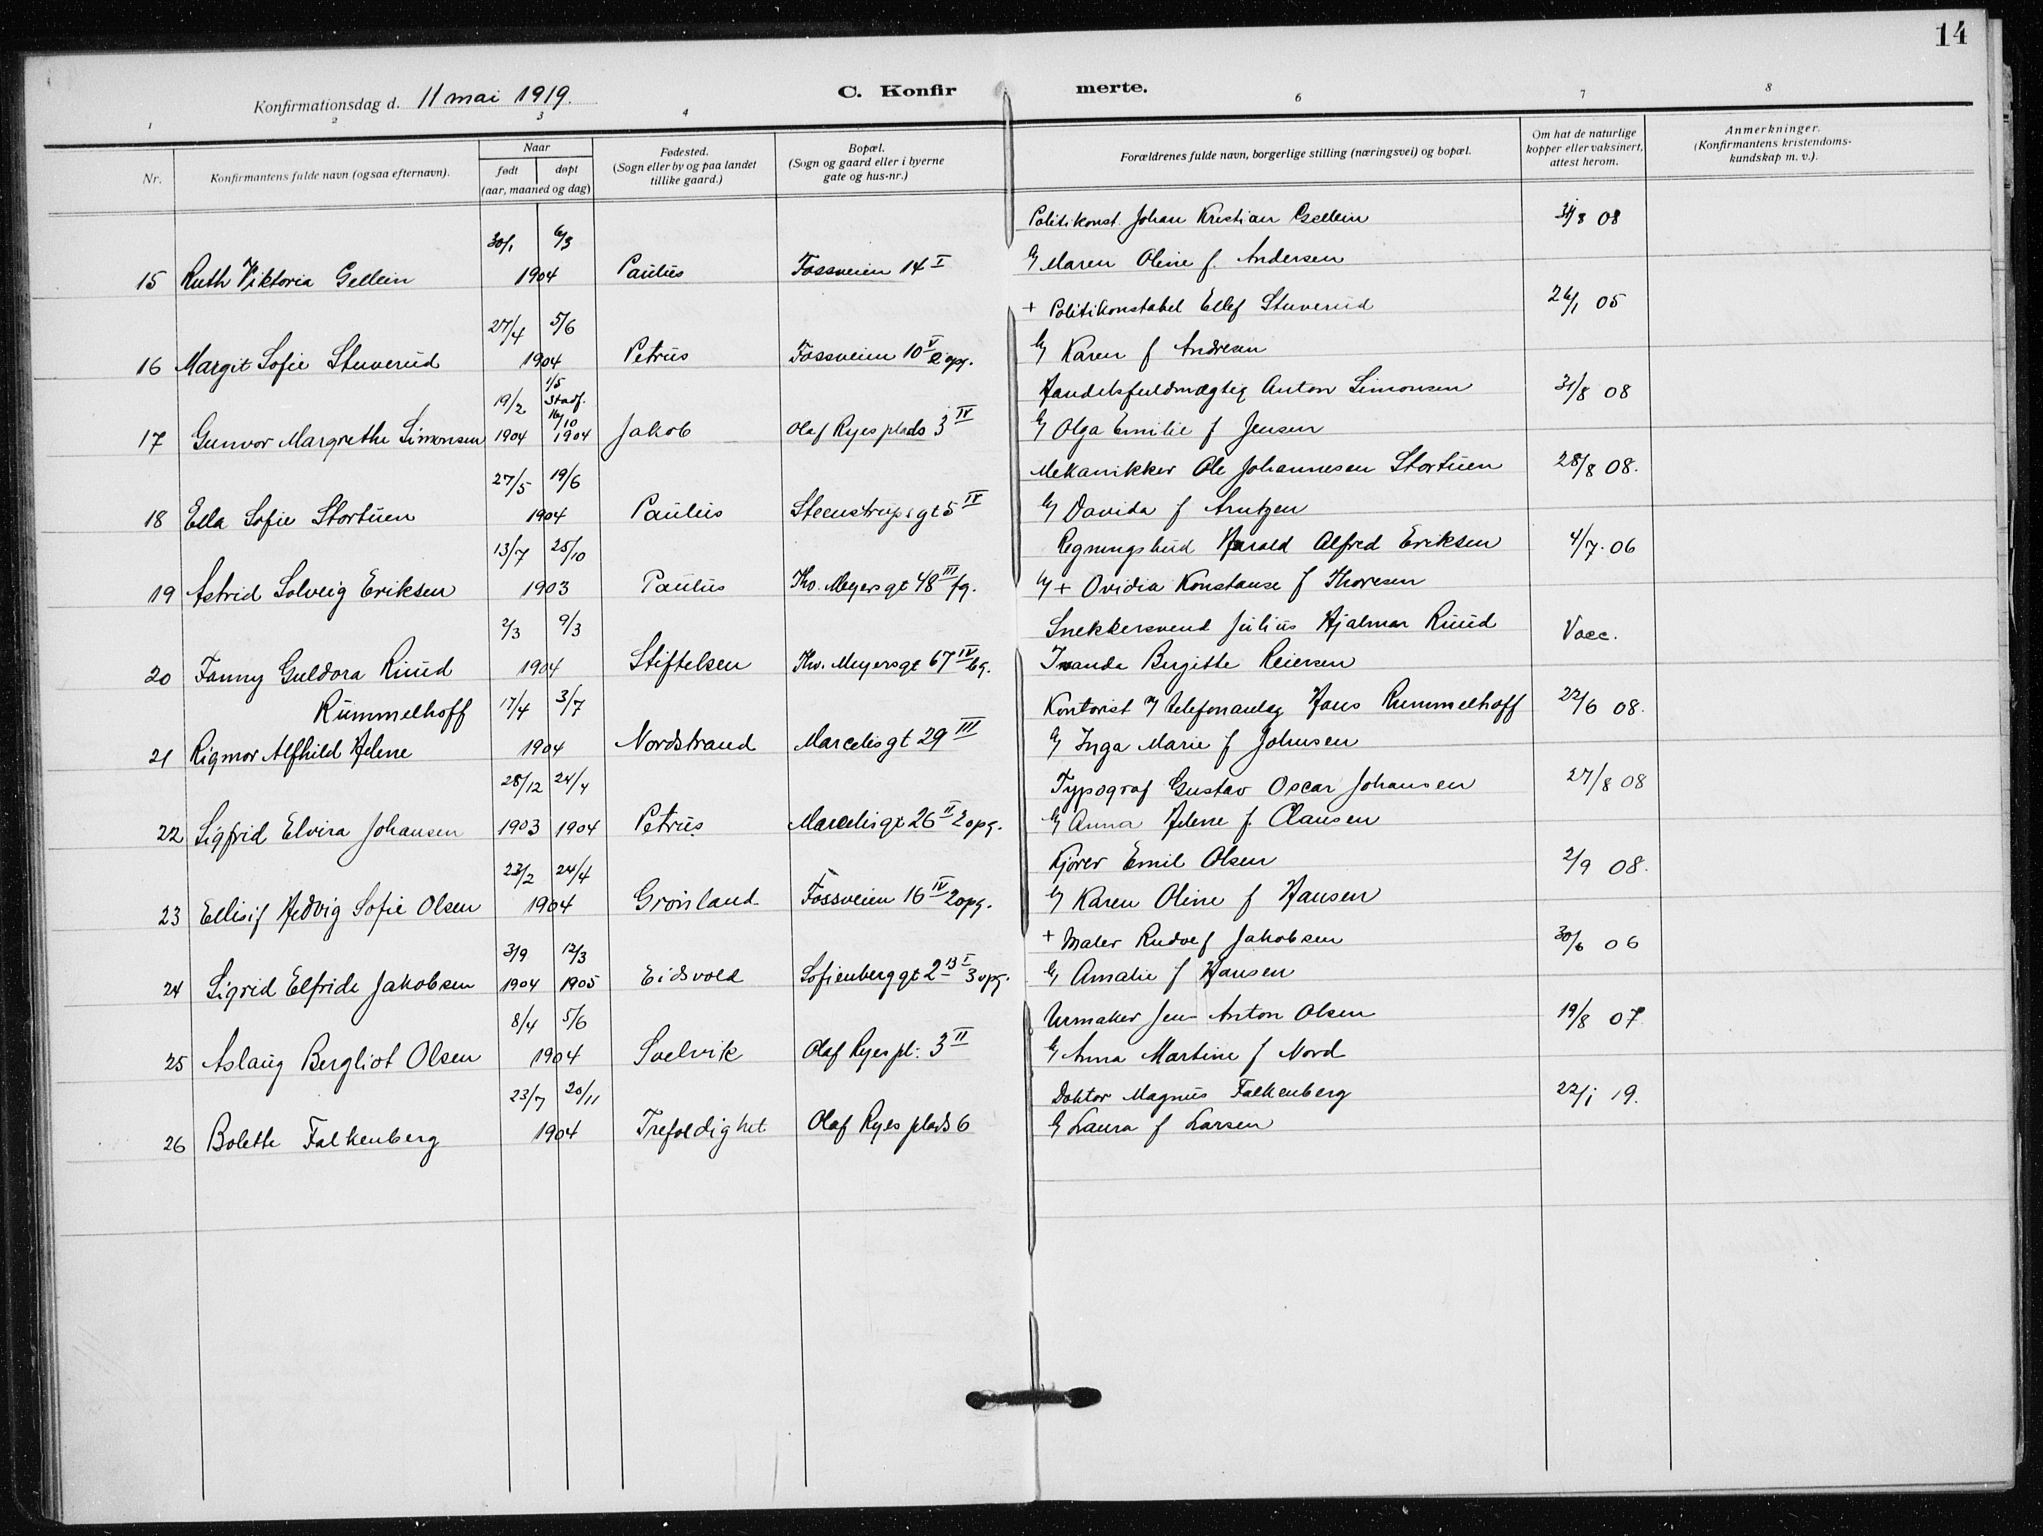 14
Konfirmationsdag d. 11 mai 1919.
C. Konfir merte.
1 2 3 4 6 7 8
Nr.
Konfirmantens fulde navn (ogsaa efternavn).
Naar
født døpt
(aar, maaned og dag)
Fødested.
(Sogn eller by og paa landet
tillike gaard.)
Bopæl.
(Sogn og gaard eller i byerne
gate og hus-nr.)
Forældrenes fulde navn, borgerlige stilling (næringsvei) og bopæl.
Om hat de naturlige
kopper eller vaksinert,
attest herom.
Anmerkninger.
(Konfirmantens kristendoms-
kundskap m. v.).
30/1 6/3 Politikonst. Johan Kristian Gellein 31/8 08
15 Ruth Viktoria Gellein 1904 Paulus Fossveien 14 I Maren Oline f. Andersen
27/4 5/6 + Politikonstabel Ellef Stuverud 26/1 05
16 Margit Sofie Stuverud 1904 Petrus Fossveien 10 V 2 opg. Karen f Andresen
19/2 1/5 Stadf. 16/10 Handelsfuldmægtig Anton Simonsen 31/8 08
17 Gunvor Margrethe Simonsen 1904 1904 Jakob Olaf Ryes plads 3 IV Olga Emilie f Jensen
27/5 19/6 Mekanikker Ole Johannesen Stortuen 28/8 08.
18 Ella Sofie Stortuen 1904 Paulus Steenstrups gt 5 IV Davida f Arntzen
13/7 25/10 Regningsbud Harald Alfred Eriksen 4/7. 06
19 Astrid Solveig Eriksen 1903 Paulus Thv. Meyers gt 48 III fg. + Ovidia Konstanse f Thoresen
2/3 9/3 Snekkersvend Julius Hjalmar Ruud Vacc.
20 Fanny Guldora Ruud 1904 Stiftelsen Thv. Meyers gt 67 IV bg. Birgitte Reiersen
Rummelhoff 17/4 3/7 Kontorist v/ telefonanlæg Hans Rummelhoff 22/6 08.
21 Rigmor Alfhild Helene 1904 Nordstrand Marcelis gt 29 III Inga Marie f Johnsen
28/12 24/4 Typograf Gustav Oscar Johansen 27/8 08
22 Sigfrid Elvira Johansen 1903 1904 Petrus Marcelis gt 26 II 2 opg. Anna Helene f. Clausen
23/2 24/4 Kjører Emil Olsen 2/9 08.
23 Ellisif Hedvig Sofie Olsen 1904 Grønland Fossveien 16 IV 2 opg. Karen Oline f Hansen
3/9 12/3 + Maler Rudolf Jakobsen 30/6 06
24 Sigrid Elfride Jakobsen 1904 1905 Eidsvold Sofienberggt 2 B I 3 opg. Amalie f Hansen
8/4 5/6 Urmaker Jens Anton Olsen 19/8 07
25 Aslaug Bergliot Olsen 1904 Svelvik Olaf Ryes pl. 3 II Anna Martine f Nord
23/7 20/11 Doktor Magnus Falkenberg 22/1 19.
26 Bolette Falkenberg 1904 Trefoldighet Olaf Ryes plads 6 Laura f Larsen